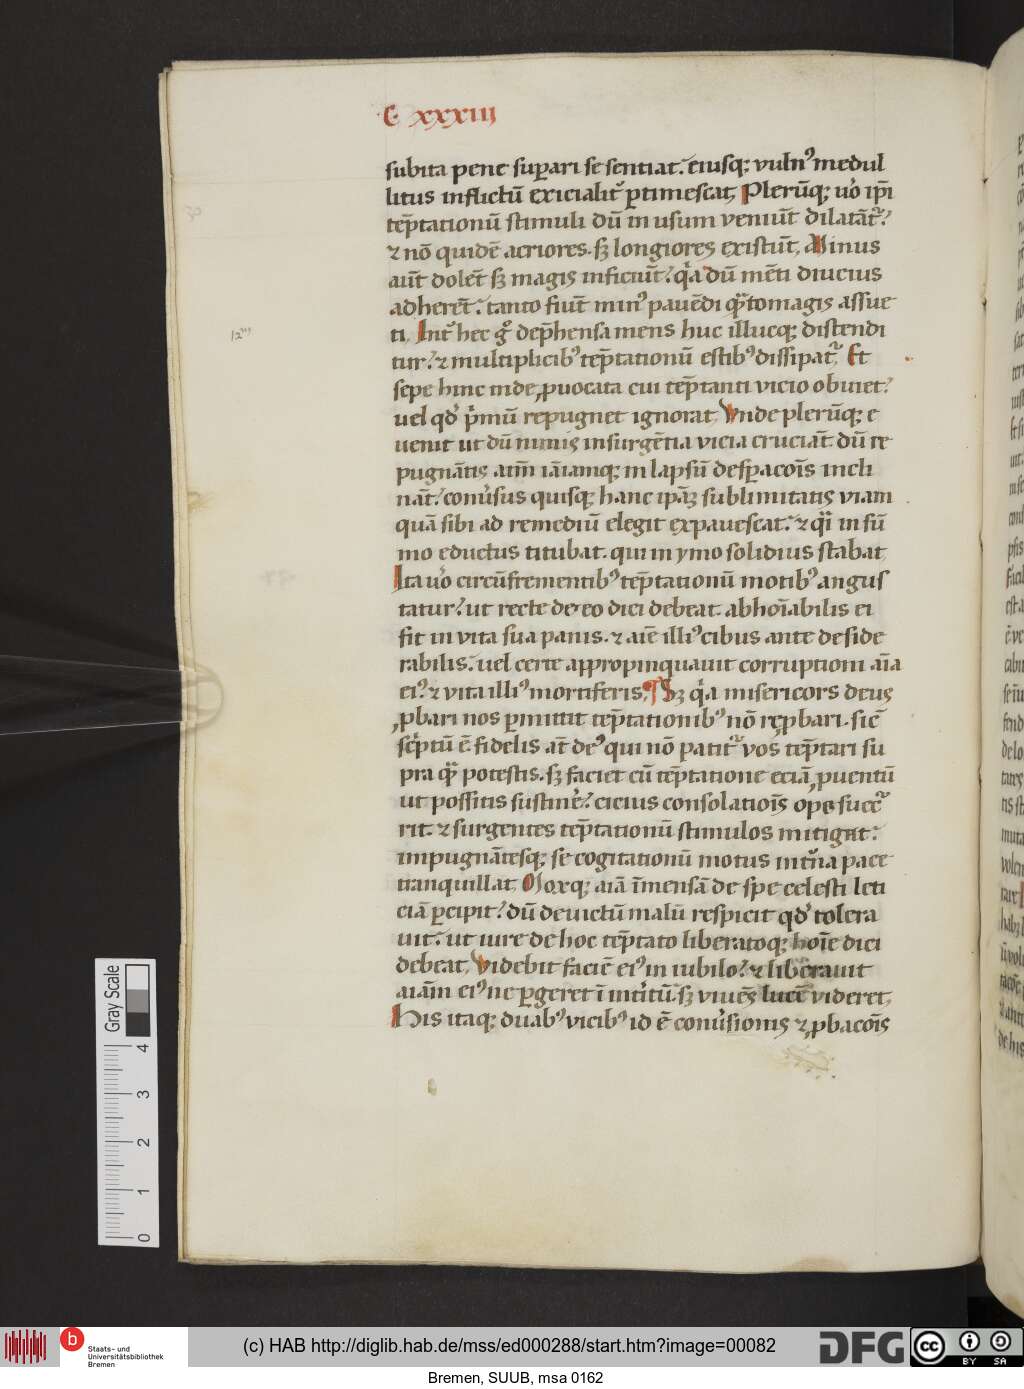 C. xxxiii
subita pene sup̱ari se sentiat. eiusq; vuln᷒ medul
litus inflictū exicialit᷑ ꝑtimescat, Plerūq; uo᷑ ip̄i
tēp̄tationū stimuli dū in usum veniūt dilatāt᷑?
⁊ nō quidē acriores. sꝫ longiores existūt, Minus
aūt dolēt sꝫ magis inficiūt? qͥa dū mēti diucius
adherēt. tanto fiūt min᷒ pauēdi qͣ̄to magis assue
ti, Int᷑ hec gͦ dep̄hensa mens huc illucq; distendi
tur? ⁊ multiplicib᷒ tēp̄tationū estib᷒ dissipat᷑, Et
sepe hinc inde ꝓuocata cui tēp̄tanti vicio obuiet?
uel qd᷑ pͥmū repugnet ignorat, Vnde plerūq; e
uenit ut dū nimis insurgētia vicia cruciāt. dū re
pugnātis aīm iāiamq; in lapsū desꝑacoīs incli
nāt? conu᷑sus quisq; hanc ip̄aꝫ sublimitatis viam
quā sibi ad remediū elegit expauescat. ⁊ qͣi in sū
mo eductus titubat. qui in ymo solidius stabat,
Ita uo᷑ circūfrementib᷒ tēp̄tationū motib᷒ angus
tatur? ut recte de eo dici debeat. abhoīabilis ei
fit in vita sua panis. ⁊ aīe illi᷒ cibus ante deside
rabilis. uel certe appropinquauit corruptioni aīa
ei᷒. ⁊ vita illi᷒ mortiferis, ¶ Sꝫ qͥa misericors deus
ꝓbari nos ꝑmittit tēp̄tationib᷒ nō reꝓbari. sic̄
scͥptū ē fidelis at̄ de᷒ qui nō patit᷑ vos tēp̄tari su
pra qͣ̄ potestis. sꝫ faciet cū tēp̄tatione eciā ꝓuentū
ut possitis sustine᷑? cicius consolatioīs ope succ᷑
rit. ⁊ surgentes tēp̄tationū stimulos mitigat.
impugnātesq; se cogitationū motus int᷑na pace
tranquillat, Moxq; aīa īmensā de spe celesti leti
ciā ꝑcipit? dū deuictū malū respicit qd᷑ tolera
uit. ut iure de hoc tēp̄tato liberatoq; hoīe dici
debeat, Videbit faciē ei᷒ in iubilo? ⁊ liberauit
aīam ei᷒ ne ꝑgeret ī int᷑itū. sꝫ viuēs lucē videret,
His itaq; duab᷒ vicib᷒ id ē conu᷑sionis ⁊ ꝓbacoīs
Gray Scale
4
3
2
1
0
Staats- und
Universitätsbibliothek
Bremen
(c) HAB http://diglib.hab.de/mss/ed000288/start.htm?image=00082
DFG
cc BY SA
Bremen, SUUB, msa 0162